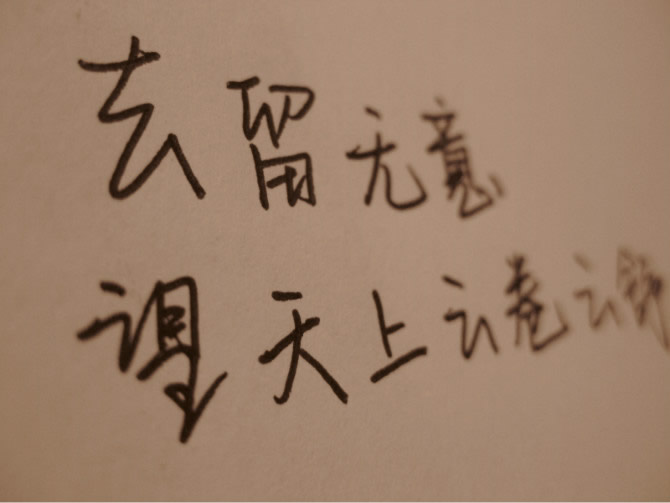 去留无意
望天上云卷云舒